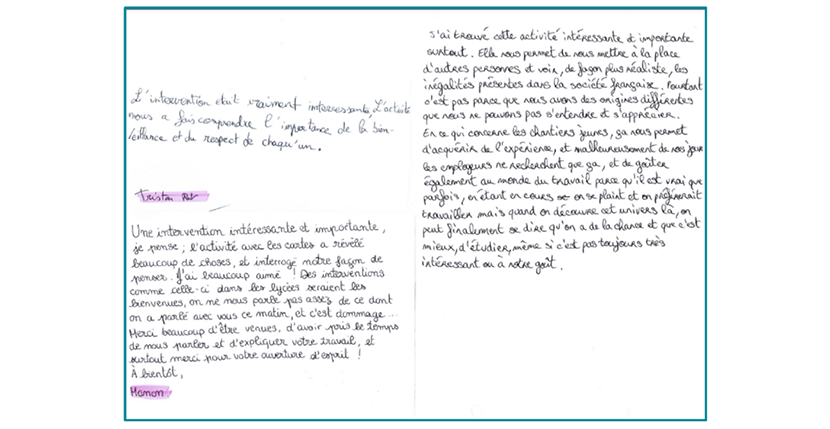 L'intervention etait vraiment interressante, L'activité
nous a fais comprendre l'importance de la bien-
veillance et du respect de chaqu'un.
Tristan
Une intervention intéressante et importante,
je pense ; l'activité avec les cartes a révélé
beaucoup de choses, et interrogé notre façon de
penser. J'ai beaucoup aimé ! Des interventions
comme celle-ci dans les lycées seraient les
bienvenues, on ne nous parle pas assez de ce dont
on a parlé avec vous ce matin, et c'est dommage...
Merci beaucoup d'être venues, d'avoir pris le temps
de nous parler et d'expliquer votre travail, et
surtout merci pour votre ouverture d'esprit !
À bientôt,
Manon
J'ai trouvé cette activité intéressante et importante
surtout. Elle nous permet de nous mettre à la place
d'autres personnes et voir, de façon plus réaliste, les
inégalités présentes dans la société française. Pourtant
c'est pas parce que nous avons des origines différentes
que nous ne pouvons pas s'entendre et s'apprécier.
En ce qui concerne les chantiers jeunes, ça nous permet
d'acquérir de l'expérience, et malheureusement de nos jours
les employeurs ne recherchent que ça, et de goûter
également au monde du travail parce qu'il est vrai que
parfois, en étant en cours on se plaint et on préférerait
travailler mais quand on découvre cet univers là, on
peut finalement se dire qu'on a de la chance et que c'est
mieux, d'étudier, même si c'est pas toujours très
intéressant ou à notre goût.